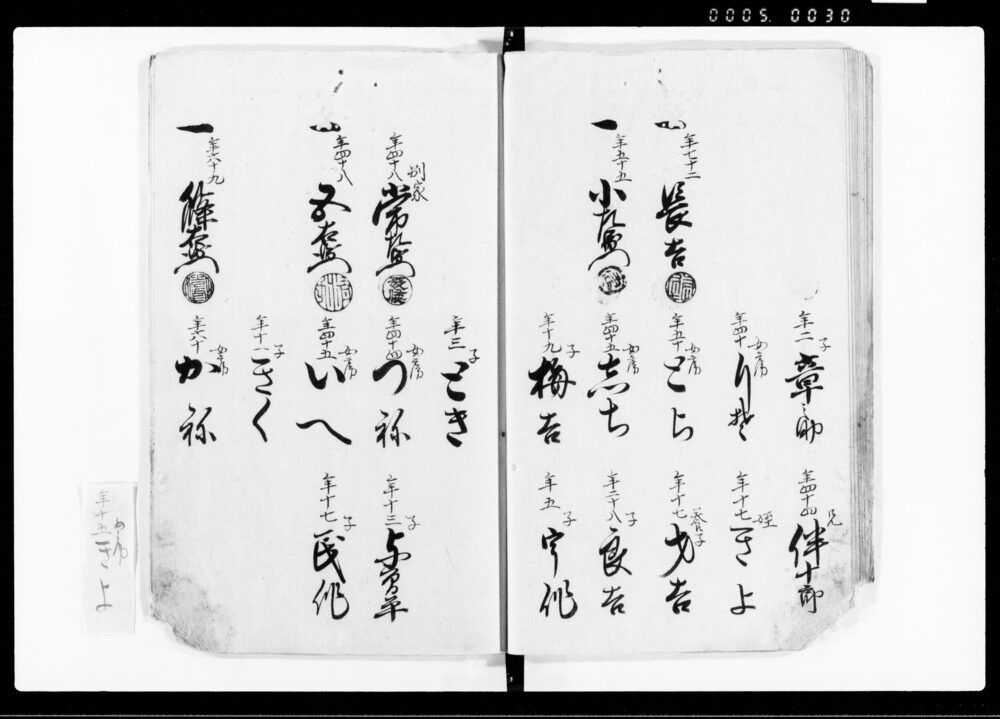 0005. 0030
年二
子
章之助
年四十四
兄
伴十郎
年四十
女房
りそ
年十七
姪
きよ
年七十二
長吉
年五十
女房
とら
年十七
養子
力吉
一
年五十五
年四十五
女房
志ち
年二十八
子
良吉
年十九
子
梅吉
年五
子
宇作
年三
子
とき
年四十八
別家
年四十四
女房
つ祢
年十三
子
年四十八
年四十五
女房
いへ
年十七
子
民作
年十一
子
きく
一
年六十九
年六十
女房
か祢
年十五
女房
きよ